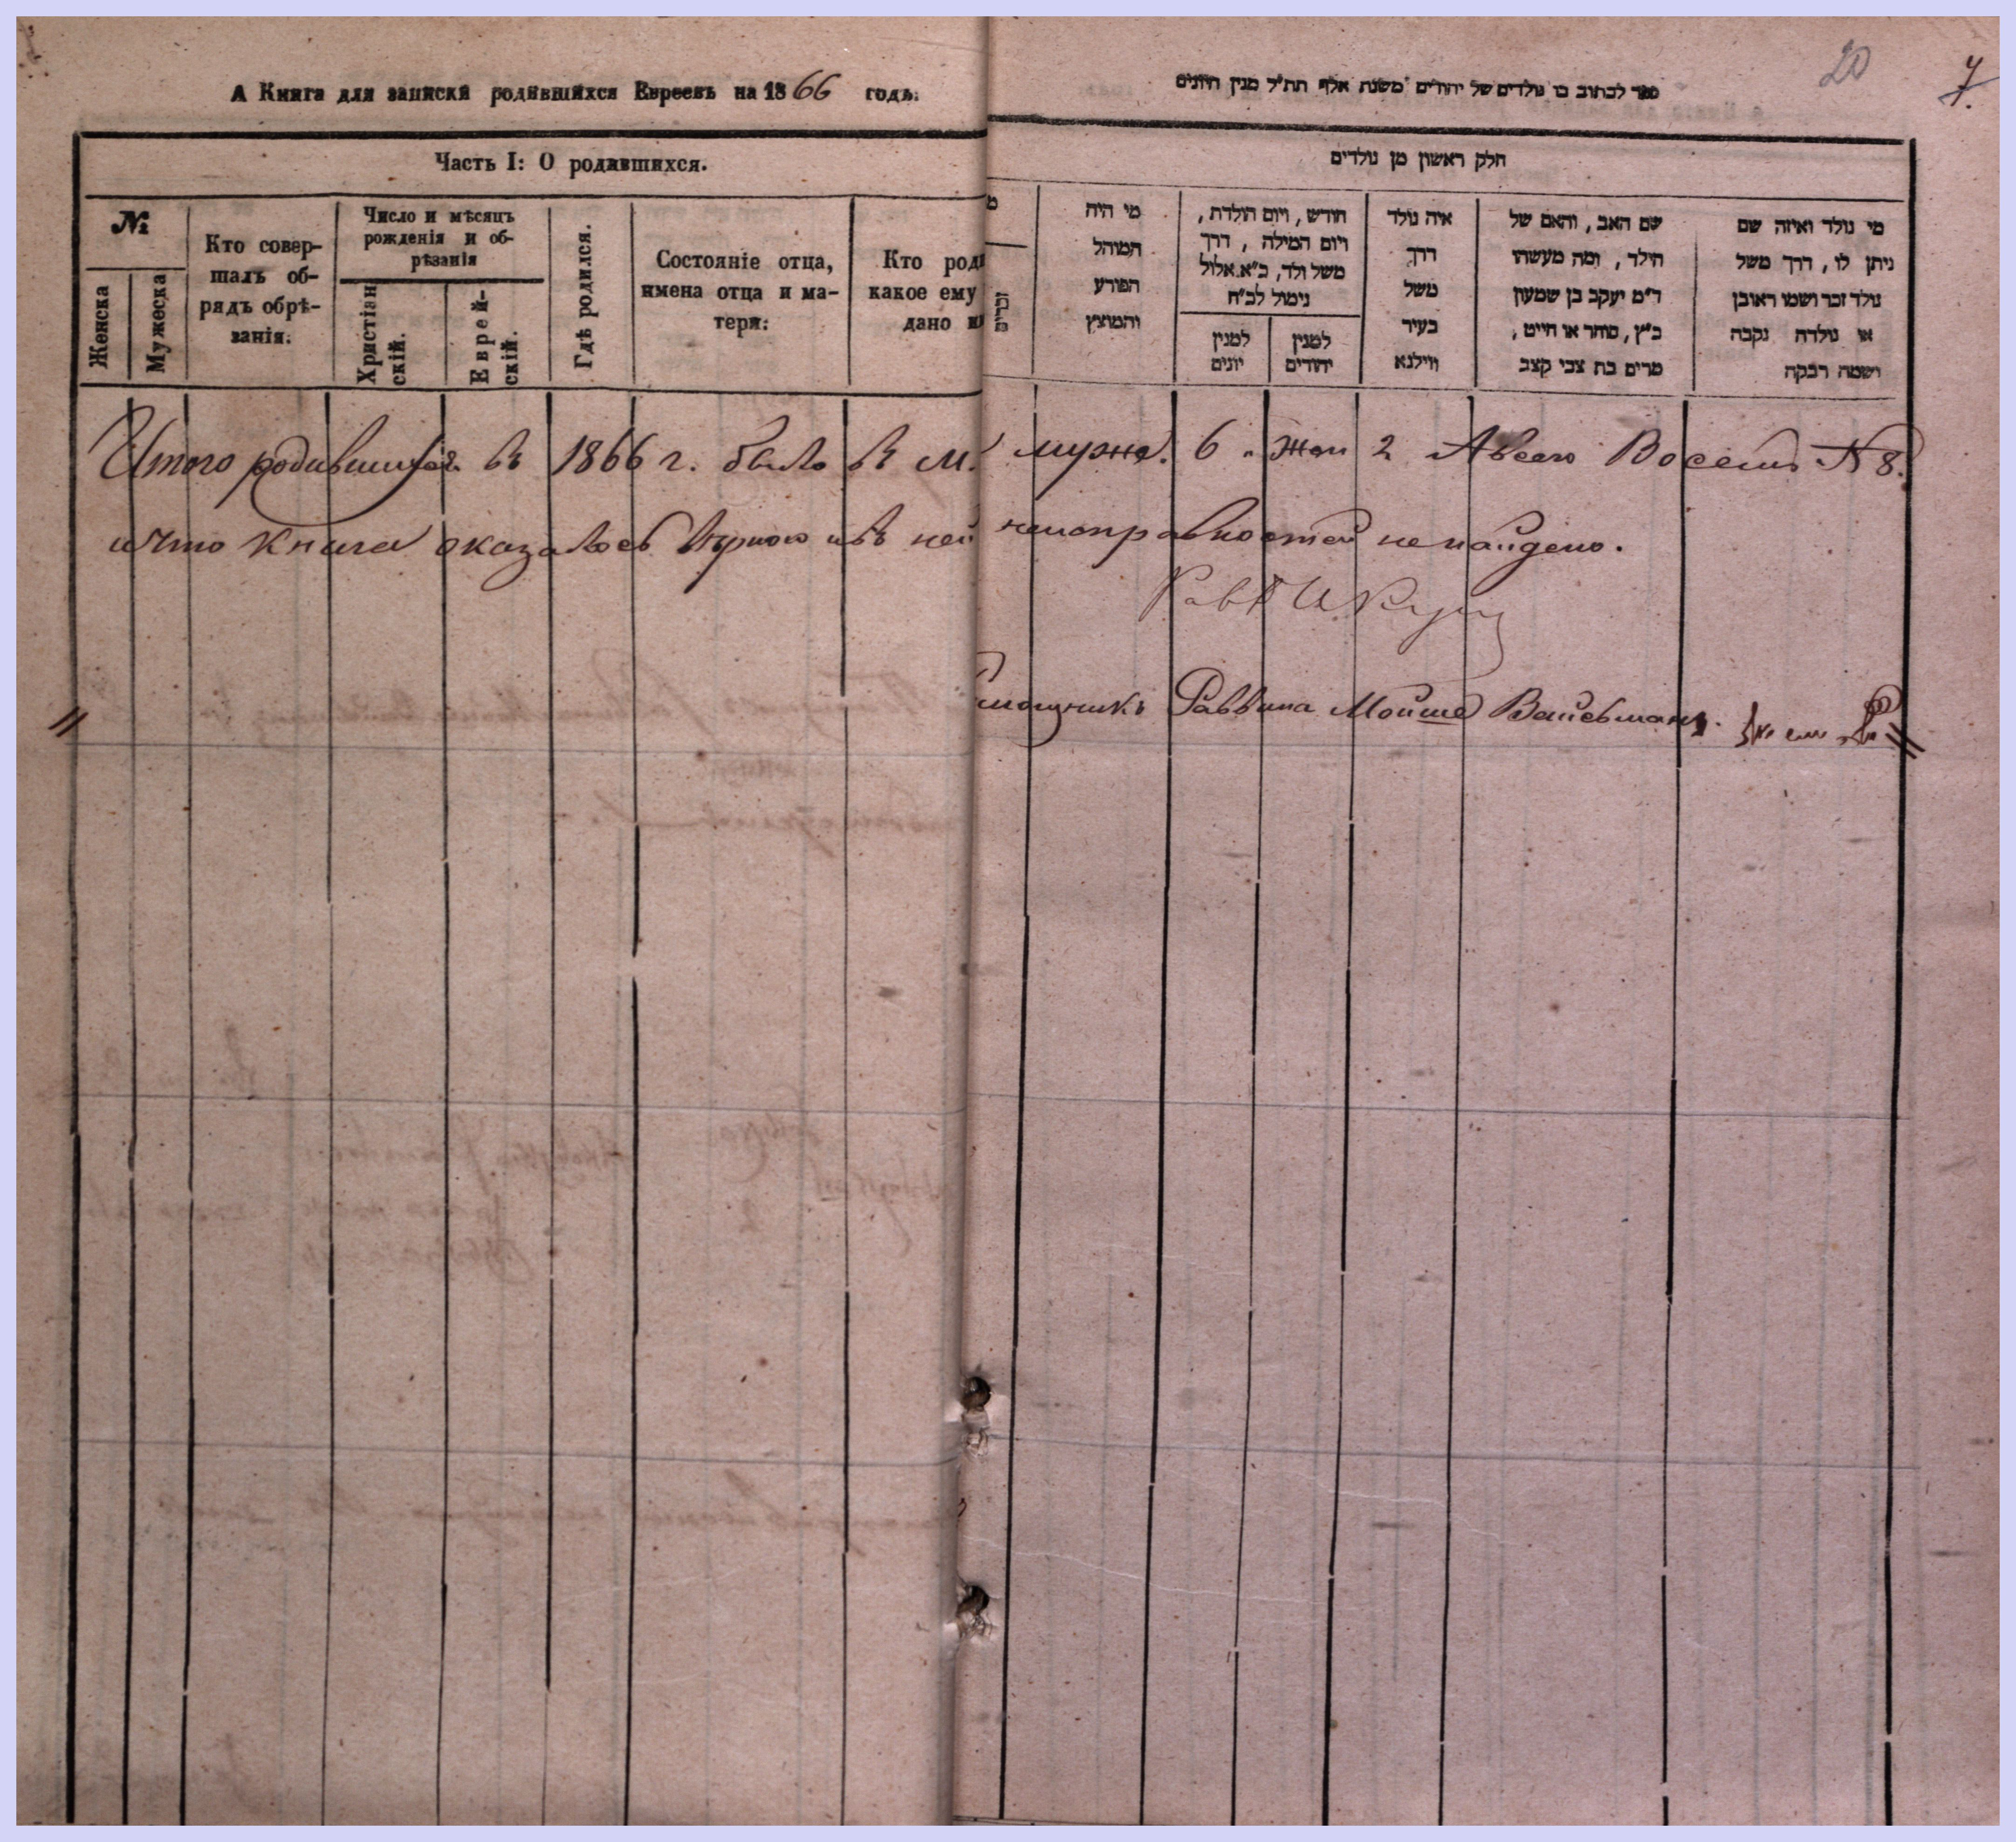 А Книга для записки родившихся Евреевъ на 1866 годъ.
Часть I: О родившихся.
№
Женска
Мужеска
Кто совер-
шалъ об-
рядъ обрѣ-
занія.
Число и мѣсяцъ
рожденія и об-
рѣзанія
Христіан
скій.
Еврей-
скій.
Гдѣ родился.
Состояніе отца,
имена отца и ма-
тери:
Кто роди
какое ему
дано и
20
7.
ספר לכתוב בו נולדים של יהודים משנת אלף תת״ל מנין היונים
חלק ראשון מן נולדים
מי נולד ואיזה שם
ניתן לו, דרך משל
נולד זכר ושמו ראובן
או נולדה נקבה
ושמה רבקה
שם האב, והאם של
הילד, ומה מעשהו
ד״מ יעקב בן שמעון
כ״ץ, סוחר או חייט,
מרים בת צבי קצב
איה נולד
דרך
משל
בעיר
ווילנא
חודש, ויום הולדת,
ויום המילה, דרך
משל ולד, כ״א אלול
נימול לכ״ח
למנין
יהודים
למנין
יונים
מי היה
המוהל
הפורע
והמוצץ
מ
זכרים
Итого родившихся въ 1866 г. было въ м. мужс. 6 жен 2 А всего Восемь N 8.
и что книга оказалось вѣрною и въ ней неисправностей не найдено.
Рав
мощникъ Раввина Мойше Вайсьманъ.